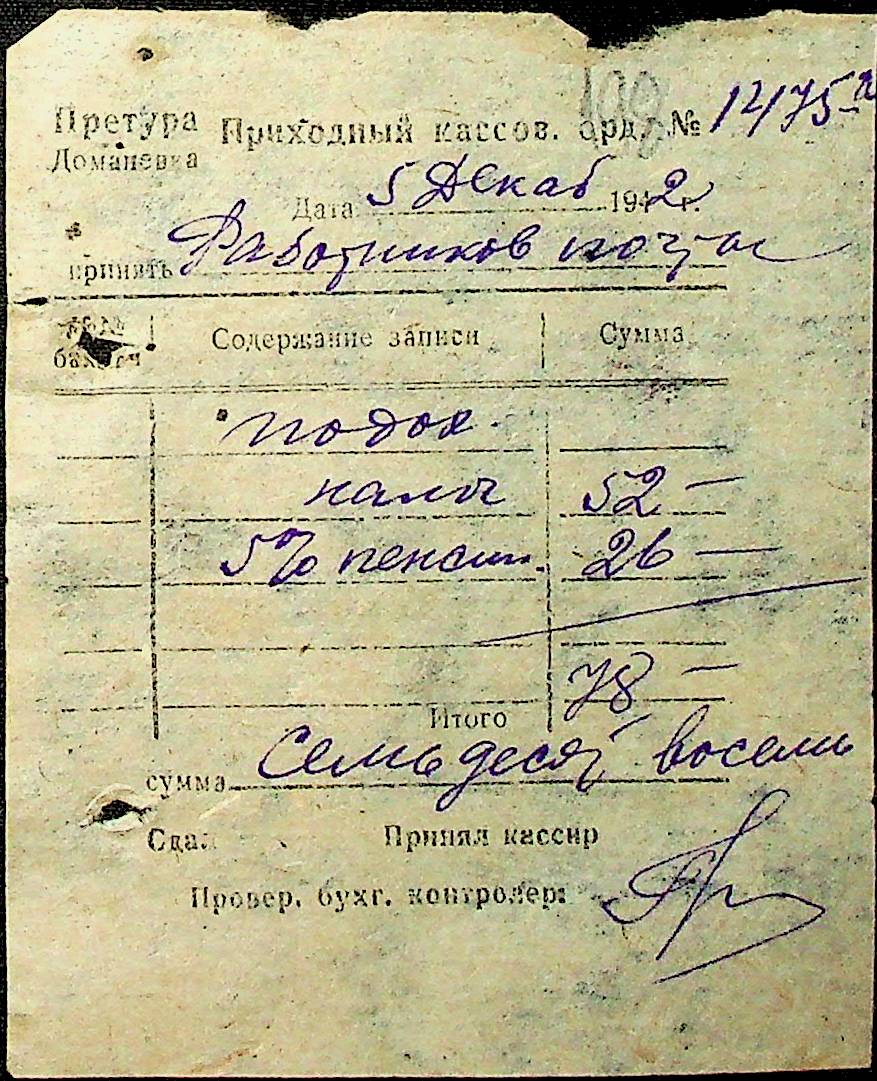 Претура Приходный кассов. орд. № 12475-а
Доманевка
Дата 5 Декаб 1942 г.
принять Работников почты
№№ 
Содержание записи Сумма
подох.
налог 52 —
5% пенсии. 26 —
78 —
Итого
сумма Семьдесят восемь
Сдал Принял кассир
Провер. бухг. контролер: